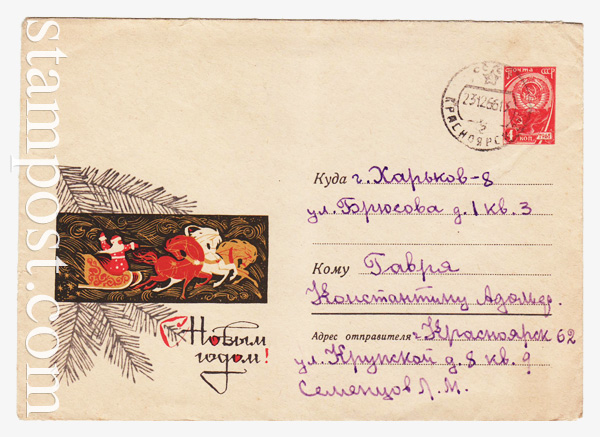 stampost.com
ПОЧТА СССР
4 КОП.
СССР
231266
КРАСНОЯРС
Куда г. Харьков-8
ул. Брюсова д. 1 кв. 3
Кому Гавря
Константину Адольф.
Адрес отправителя г. Красноярск 62
ул. Крупской д. 8 кв. 9
Семенцов Л. М.
С Новым
годом!